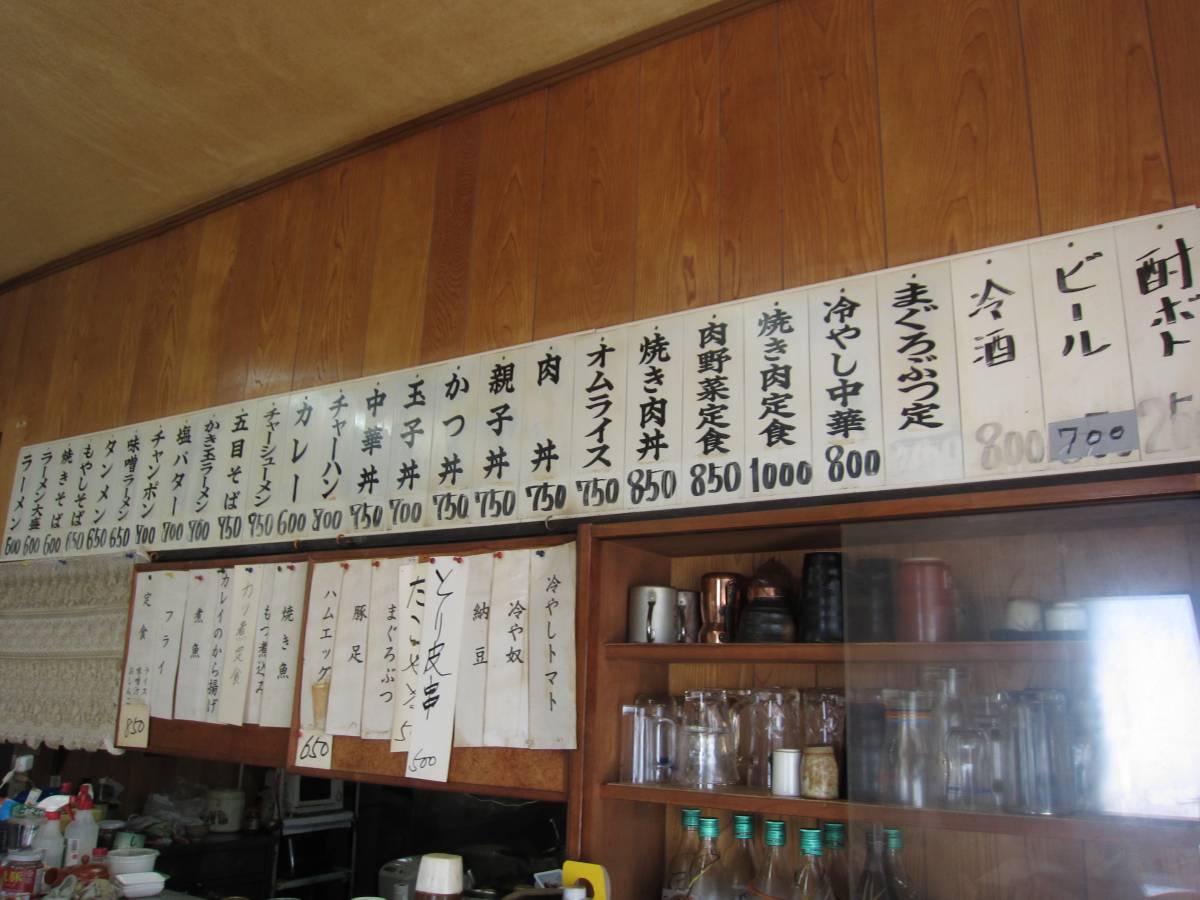 酎ボト
ビール
700
冷酒
800
まぐろぶつ定
冷やし中華
800
焼き肉定食
1000
肉野菜定食
850
焼き肉丼
850
オムライス
750
肉丼
750
親子丼
750
かつ丼
750
玉子丼
700
中華丼
750
チャーハン
カレー
600
チャーシューメン
五目そば
かき玉ラーメン
塩バター
チャンポン
味噌ラーメン
650
タンメン
650
もやしそば
焼きそば
600
ラーメン大盛
600
ラーメン
冷やしトマト
冷や奴
納豆
とり皮串
500
まぐろぶつ
豚足
ハムエッグ
650
焼き魚
もつ煮込み
カレイのから揚げ
煮魚
フライ
定食
ライス
味噌汁
おしんこ
850